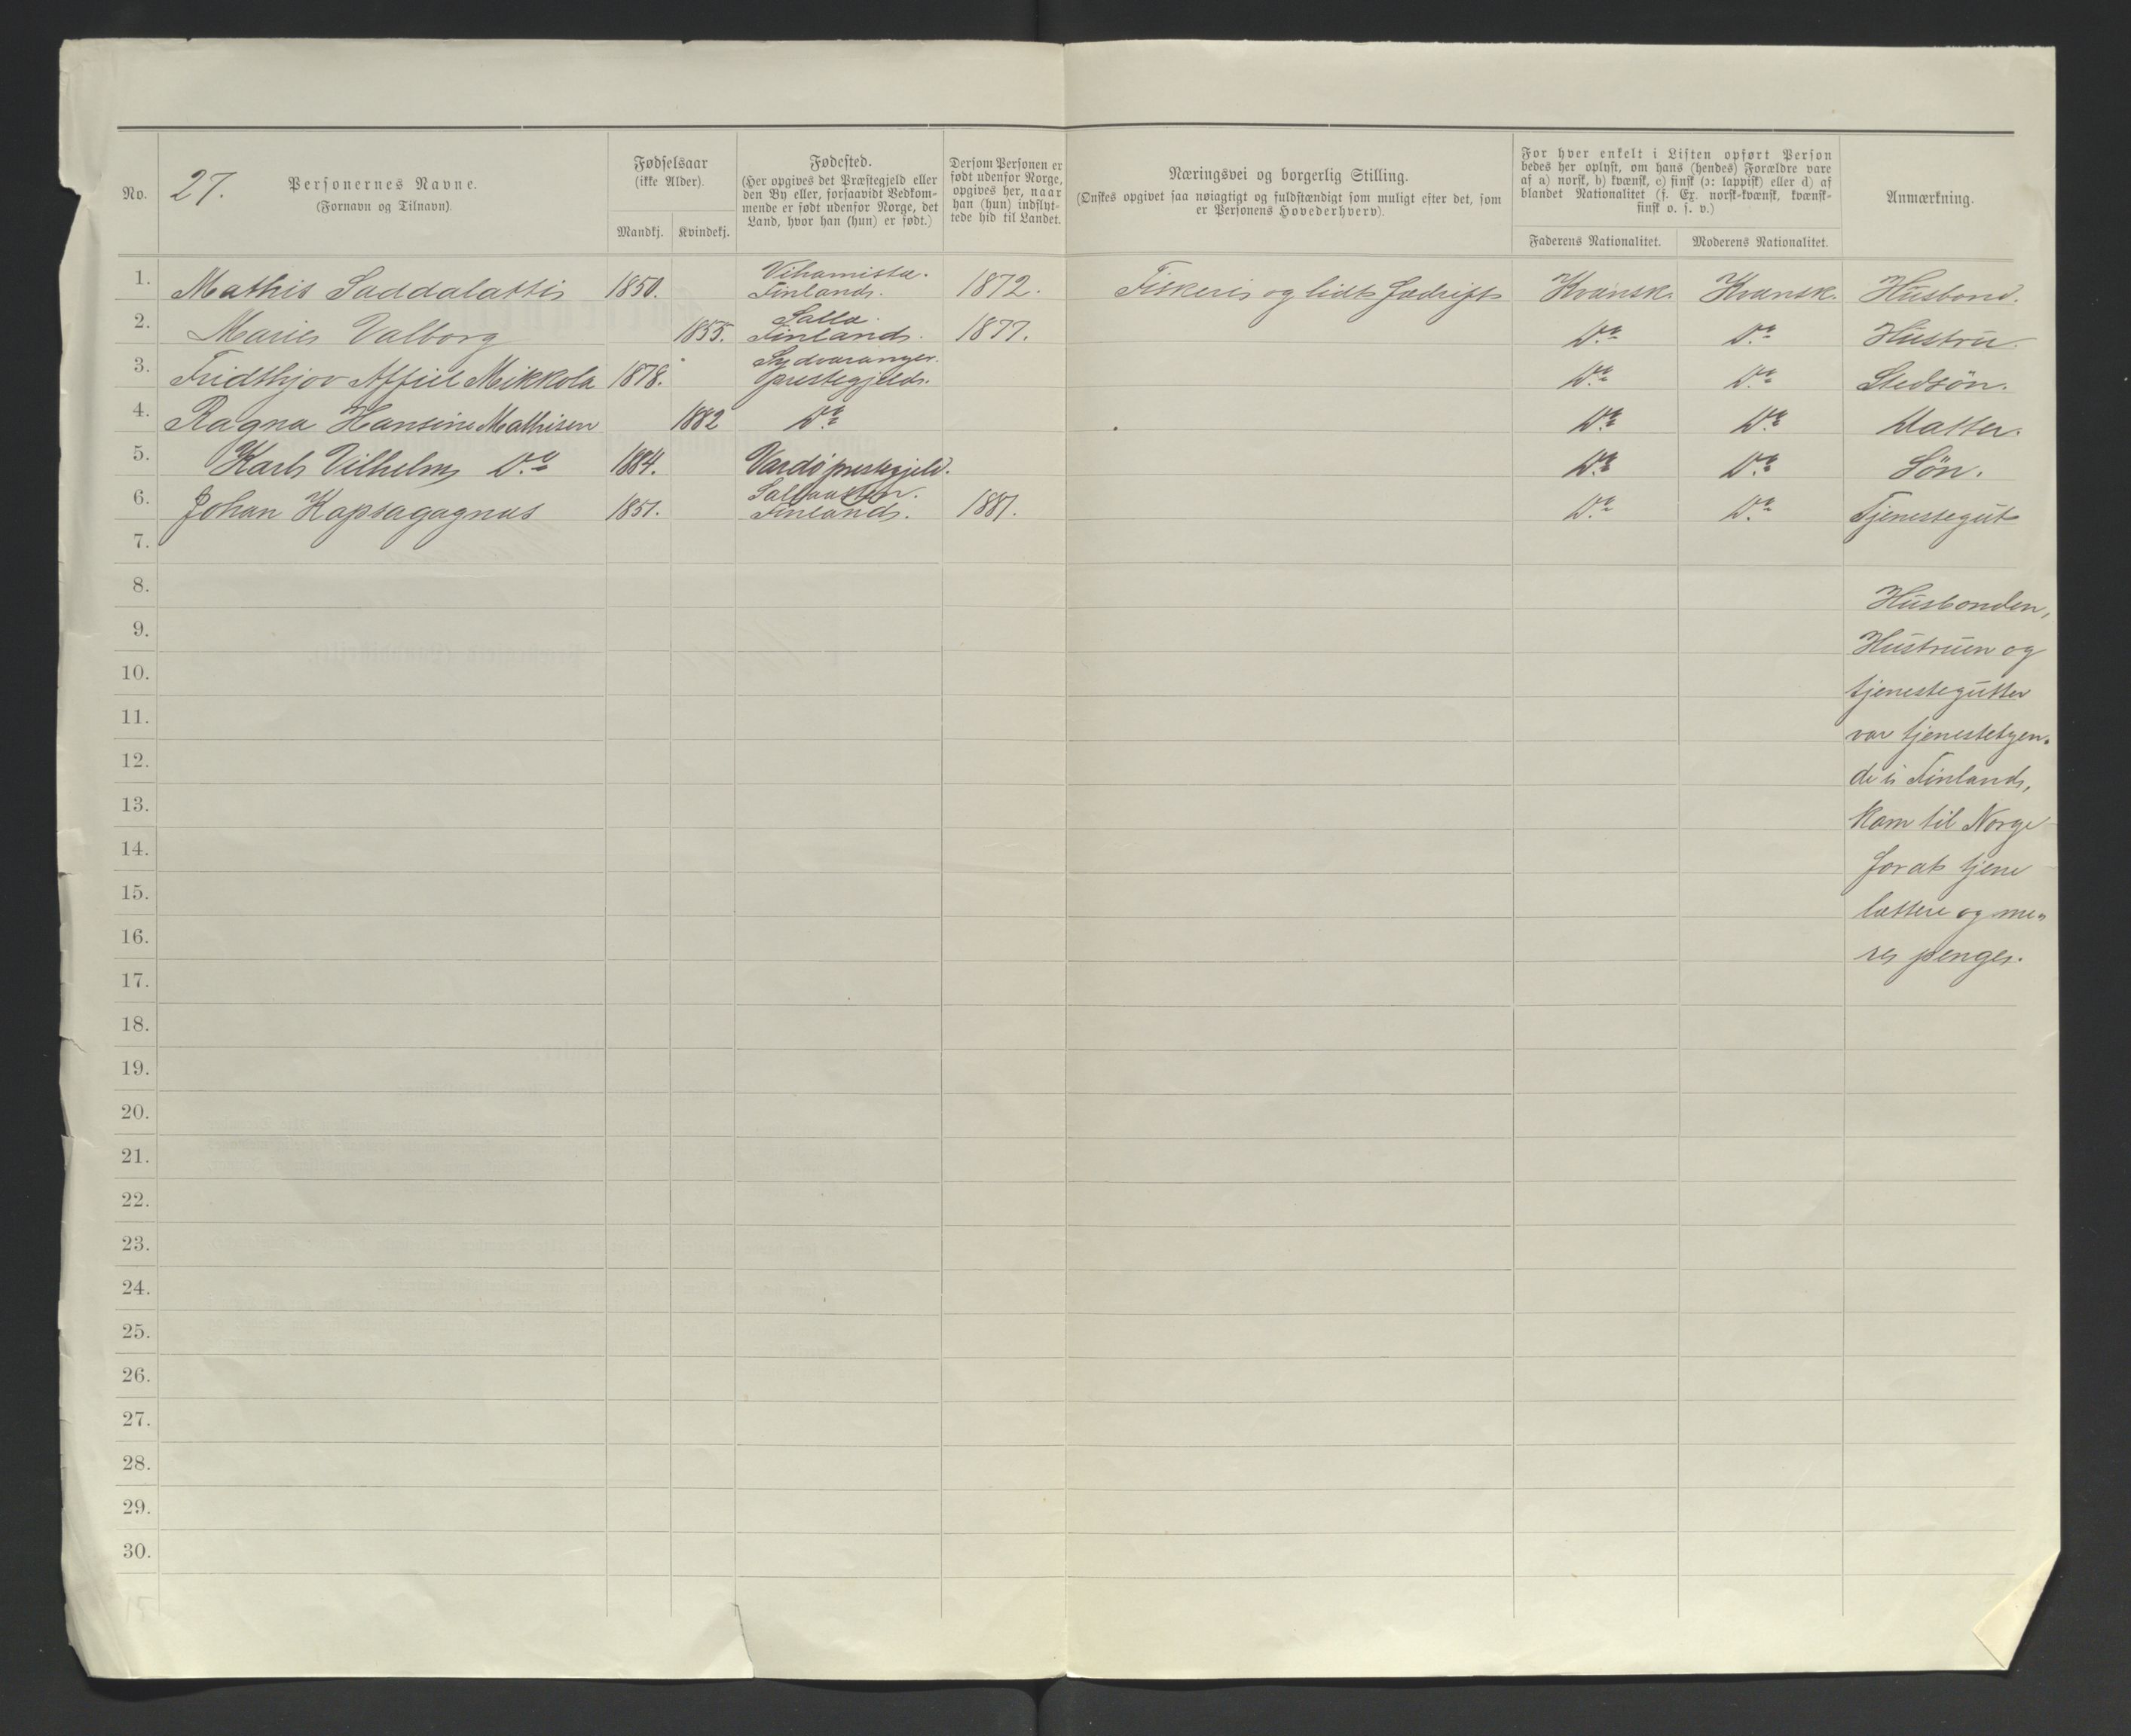 No.
27.
Personernes Navne.
(Fornavn og Tilnavn).
Fødselsaar
(ikke Alder).
Mandkj.
Kvindekj.
Fødested.
(Her opgives det Præstegjeld eller
den By eller, forsaavidt Vedkom-
mende er født udenfor Norge, det
Land, hvor han (hun) er født.)
Dersom Personen er
født udenfor Norge,
opgives her, naar
han (hun) indflyt-
tede hid til Landet.
Næringsvei og borgerlig Stilling.
(Ønskes opgivet saa nøiagtigt og fuldstændigt som muligt efter det, som
er Personens Hovederhverv).
For hver enkelt i Listen opført Person
bedes her oplyst, om hans (hendes) Forældre vare
af a) norsk, b) kvænsk, c) finsk (ɔ: lappisk) eller d) af
blandet Nationalitet (f. Ex. norsk-kvænsk, kvænsk-
finsk o. s. v.)
Faderens Nationalitet.
Moderens Nationalitet.
Anmærkning.
1. Mathis Saddalatti 1850. Vihamista. Finland. 1872. Fiskeri og lidt Jodrift Kvænsk. Kvænsk. Husbond.
2. Marie Valborg 1855. Salla. Finland. 1877. Do Do Hustru.
3. Fridthjov Affiel Mikkola 1878. Sydvaranger prestegjeld. Do Do Stedsön.
4. Ragna Hansine Mathisen 1882 Do Do Do Datter.
5. Karl Vilhelm Do 1884. Vardö prestegjeld. Do Do Sön.
6. Johan Kapsagagnas 1851. Finland. 1881. Do Do Tjenestegut
7.
8. Husbonden,
9. Hustruen og
10. tjenestegutter
11. var tjenestetyen-
12. de i Finland,
13. kom til Norge
14. for at tjene
15. lættere og me-
16. re penge.
17.
18.
19.
20.
21.
22.
23.
24.
25.
26.
27.
28.
29.
30.